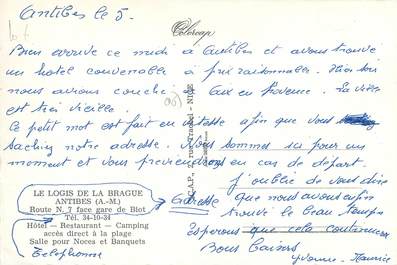 Antibes le 5.
Colorcap
Bien arrivé ce midi à Antibes et avons trouvé
un hotel convenable à prix raisonnables. Hier soir
nous avons couché à Aix en Provence. La ville
est très vieille.
Ce petit mot est fait en vitesse afin que vous
sachiez notre adresse. Nous sommes ici pour un
moment et vous préviendrons en cas de départ.
J'oublie de vous dire
que nous avons enfin
trouvé le beau temps
Esperons que cela continuera
Bons baisers
Yvonne - Maurice
LE LOGIS DE LA BRAGUE
ANTIBES (A.-M.)
Route N. 7 face gare de Biot
Tél. 34-10-31
Hôtel - Restaurant - Camping
accès direct à la plage
Salle pour Noces et Banquets
Téléphone
adresse